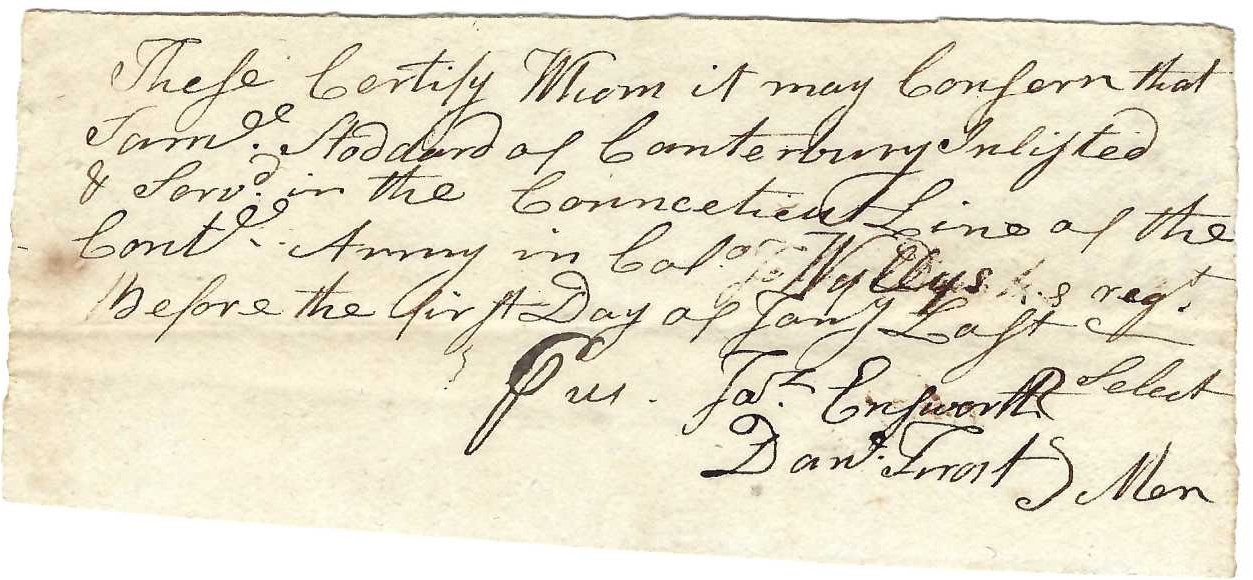 These Certify Whom it may Consern that
Sam.ll Stoddard of Canterbury Inlisted
& Serv.d in the Connceticut Line of the
Cont.ll Army in Col.o Wyllys reg.t
Before the first Day of Jan.y Last
P us. Ja.z Ensworth Select
Dan.l Frost Men